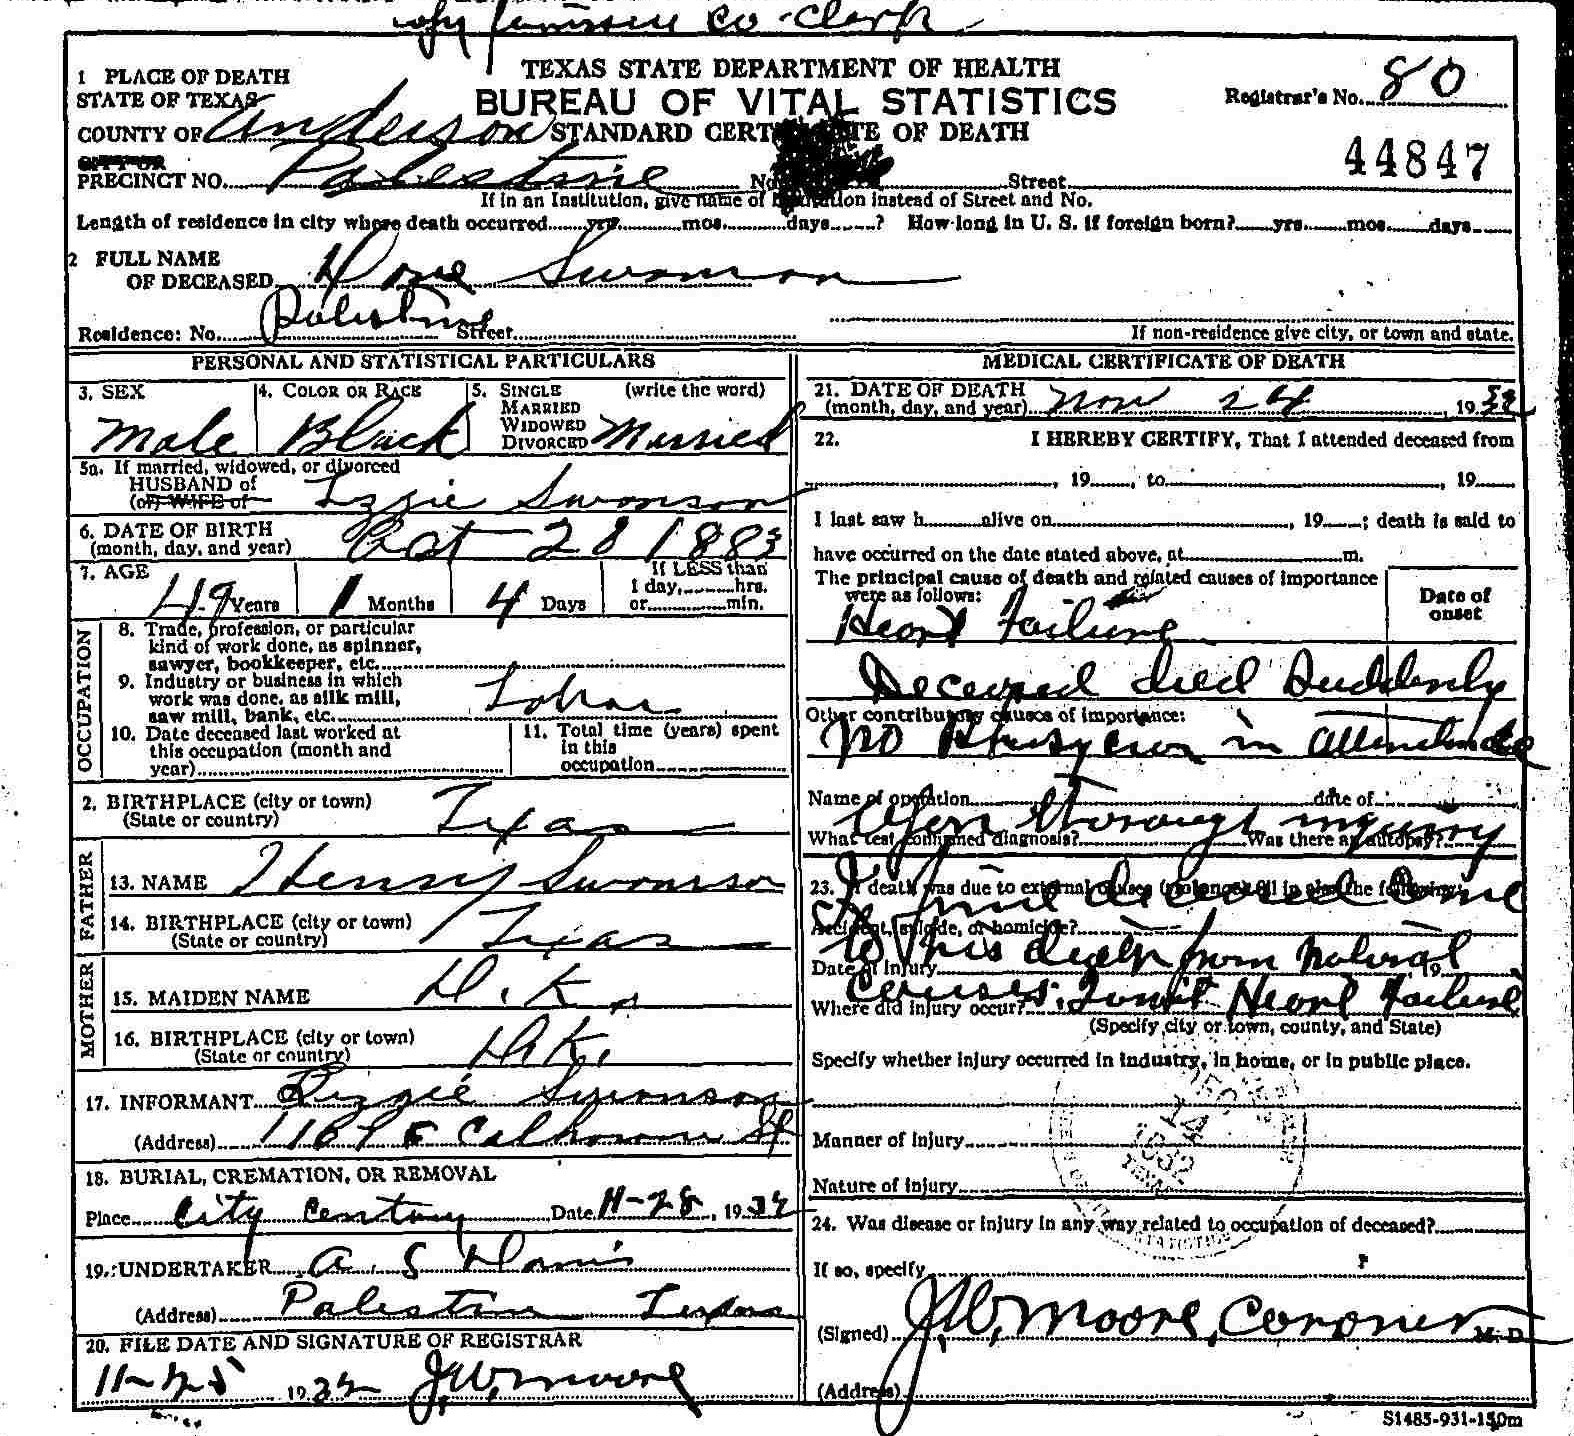 Co. Clerk
TEXAS STATE DEPARTMENT OF HEALTH
BUREAU OF VITAL STATISTICS
STANDARD CERT TE OF DEATH
Registrar's No. 80
44847
1 PLACE OF DEATH
STATE OF TEXAS
COUNTY OF Anderson
CITY OR
PRECINCT NO. Palestine No Street
If in an Institution, give name of Institution instead of Street and No.
Length of residence in city where death occurred yrs. mos. days ? How long in U. S. if foreign born? yrs. mos. days
2 FULL NAME
OF DECEASED Swanson
Residence: No. Palestine Street
If non-residence give city, or town and state.
PERSONAL AND STATISTICAL PARTICULARS
3. SEX 4. COLOR OR RACE 5. SINGLE (write the word)
MARRIED
WIDOWED
DIVORCED
Male Black Married
5a. If married, widowed, or divorced
HUSBAND of
(or) WIFE of Lizzie Swanson
6. DATE OF BIRTH
(month, day, and year) Oct 28 1883
7. AGE If LESS than
1 day, hrs.
49 Years 1 Months 4 Days or min.
OCCUPATION
8. Trade, profession, or particular
kind of work done, as spinner,
sawyer, bookkeeper, etc.
9. Industry or business in which
work was done, as silk mill,
saw mill, bank, etc. Labor
10. Date deceased last worked at
this occupation (month and
year)
11. Total time (years) spent
in this
occupation
2. BIRTHPLACE (city or town)
(State or country) Texas
FATHER
13. NAME Henry Swanson
14. BIRTHPLACE (city or town)
(State or country) Texas
MOTHER
15. MAIDEN NAME D.K.
16. BIRTHPLACE (city or town)
(State or country) D.K.
17. INFORMANT Lizzie Swanson
(Address) E Calhoun St
18. BURIAL, CREMATION, OR REMOVAL
Place City Date 11-28, 1932
19. UNDERTAKER A. S.
(Address) Palestine Texas
20. FILE DATE AND SIGNATURE OF REGISTRAR
1932 J.W. Moore
MEDICAL CERTIFICATE OF DEATH
21. DATE OF DEATH
(month, day, and year) Nov 24, 1932
22. I HEREBY CERTIFY, That I attended deceased from
, 19 , to , 19
I last saw h alive on , 19 ; death is said to
have occurred on the date stated above, at m.
The principal cause of death and related causes of importance
were as follows:
Date of
onset
Heart Failure
Deceased died Suddenly
Other contributory causes of importance:
No Physician in Attendance
Name of operation date of
Upon thorough inquiry
What test confirmed diagnosis? Was there an autopsy?
23. If death was due to external causes (violence) fill in also the following:
I find deceased Came
Accident, suicide, or homicide?
to his death from Natural
Date of injury 19
Causes, Towit Heart Failure
Where did injury occur?
(Specify city or town, county, and State)
Specify whether injury occurred in industry, in home, or in public place.
DEC 14 1932
Manner of injury
Nature of injury
24. Was disease or injury in any way related to occupation of deceased?
If so, specify
(Signed) J.W. Moore, Coroner M. D.
(Address)
S1485-931-150m